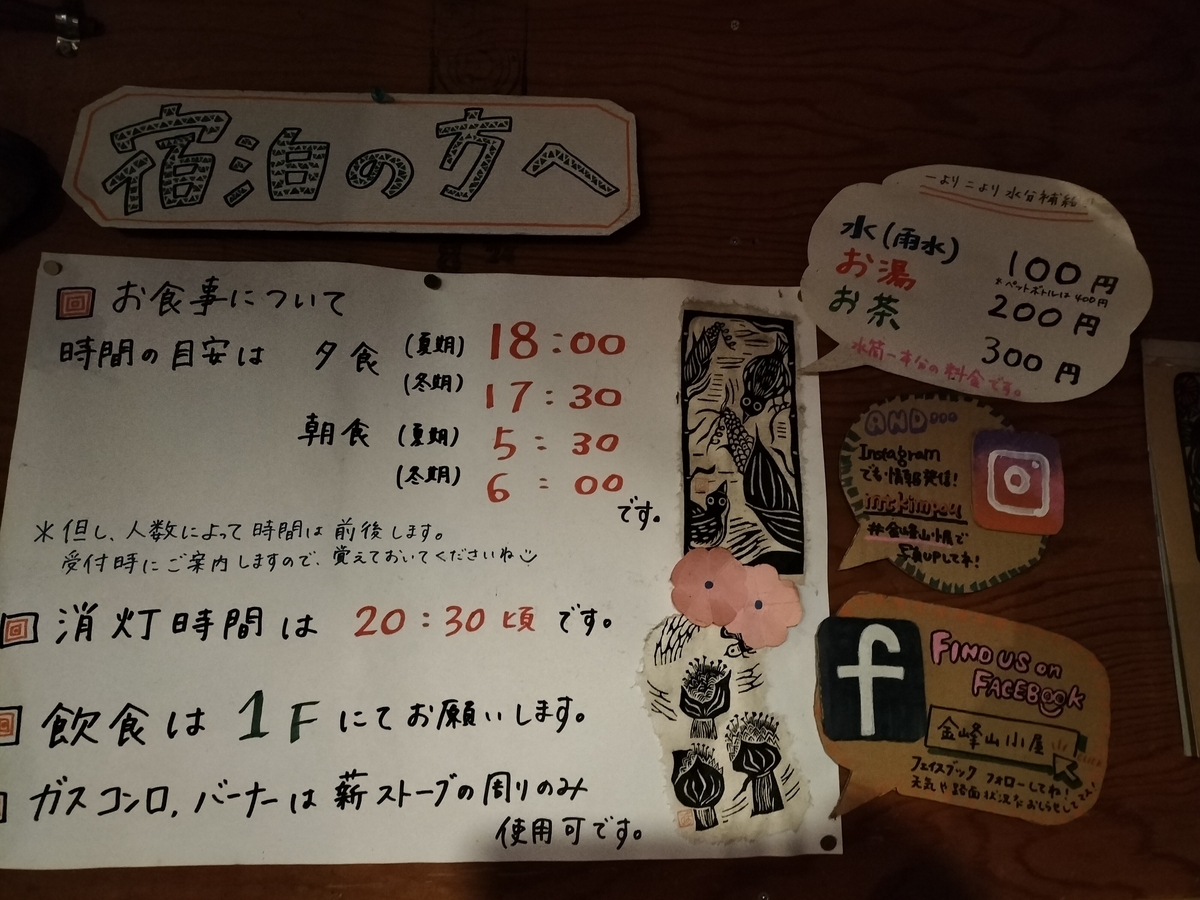 宿泊の方へ
お食事について
時間の目安は 夕食 (夏期) 18:00
(冬期) 17:30
朝食 (夏期) 5:30
(冬期) 6:00
です。
※但し、人数によって時間は前後します。
受付時にご案内しますので、覚えておいてくださいね
消灯時間は 20:30頃 です。
飲食は 1F にてお願いします。
ガスコンロ、バーナーは薪ストーブの周りのみ
使用可です。
一より二より水分補給!
水(雨水) 100円
※ペットボトルは400円
お湯 200円
お茶 300円
水筒一本分の料金です。
AND...
Instagram
でも情報発信!
mtkimpou
#金峰山小屋で
写真UPしてね!
f
FIND US on
FACEBOOK
金峰山小屋
CLICK
フェイスブック フォローしてね!
天気や路面状況などおしらせしてます!